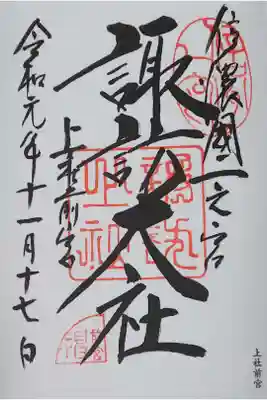 信濃國一之宮
諏訪大社
上社前宮
令和元年十一月十七日
上社前宮